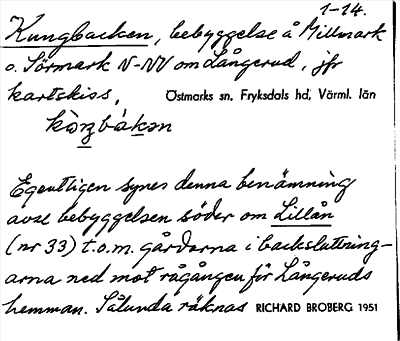 1-14.
Kungbacken, bebyggelse å Millmark
o. Sörmark N-NV om Långerud, jfr
kartskiss, Östmarks sn, Fryksdals hd, Värml. län
Egentligen synes denna benämning
avse bebyggelsen söder om Lillån
(nr 33) t.o.m. gårdarna i backsluttning-
arna ned mot rågången för Långeruds
hemman. Sålunda räknas RICHARD BROBERG 1951